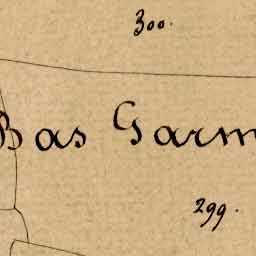 300.
Bas Garm
299.